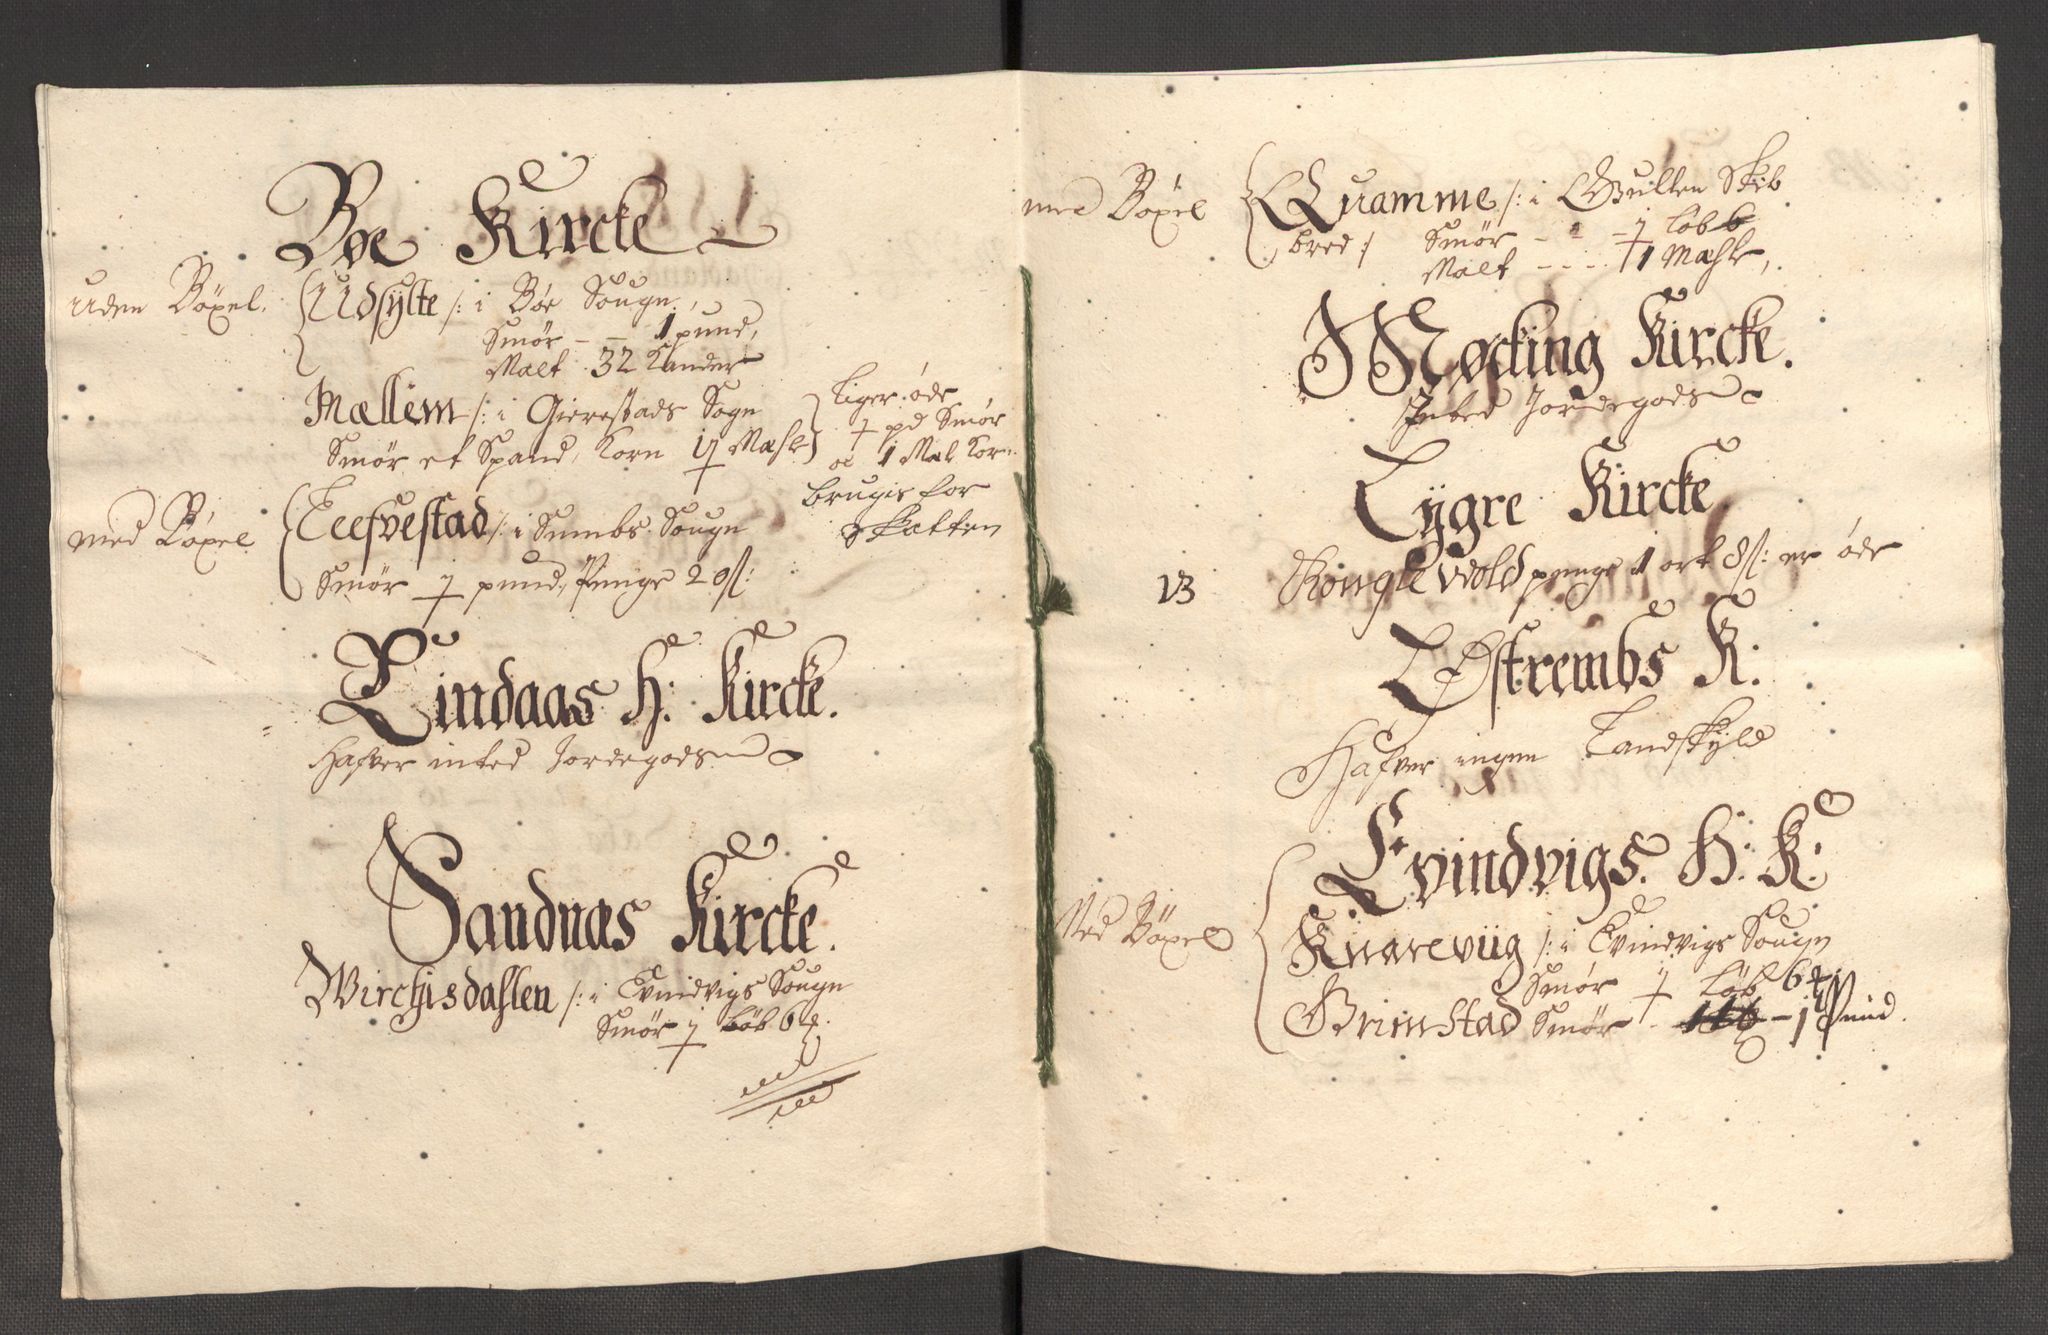 Bøe Kircke
uden Böxel. Udsylte /: i Bøe Sougn
Smør - - 1 pund,
Malt 32 Kander
Mællem /: i Gierestads Sogn
Smør et Spand, Korn 1½ Mæhle
Liger øde
½ pd Smør
oc 1 Mæl Korn
brugis for
Skatten
med Böxel Leefvestad /: i Sumbs Sougn
Smør ½ pund, Penge 20 ß:
Lindaas H: Kircke.
Hafver inted Jordegods
Sandnæs Kircke.
Wirchisdahlen /: i Evindvigs Sougn
Smør ½ Løb 6 ℔.
med Böxel Quamme /: i Gullen Skib
bred :/ Smør - - - ½ Løb
Malt - - - - 1 Mæhle,
Møcking Kircke.
Inted Jordegods
Lygre Kircke
13 Kongle vold penge 1 ort 8 ß: er øde
Østrembs K:
Hafver ingen Landskyld
Evindvigs. H: K:
Med Böxel Knarevüg /: i Evindvigs Sougn
Smør ½ Løb 6 ℔
Brimstad Smør - 1 Pund.